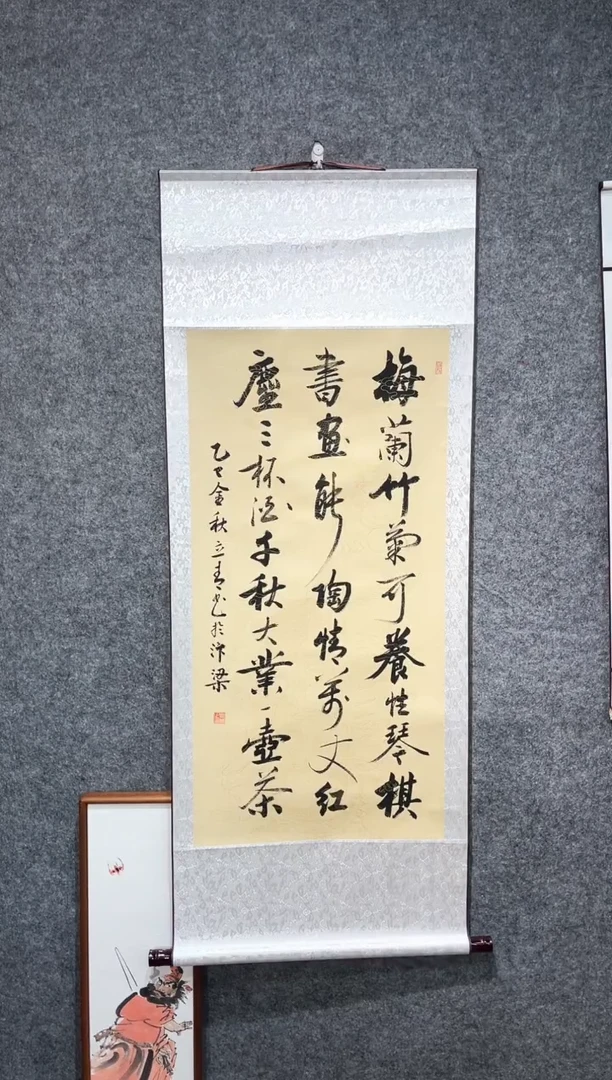 梅蘭竹菊可養性琴棋
書畫能陶情萬丈紅
塵三杯酒千秋大業一壺茶
乙巳金秋立青书於汴梁